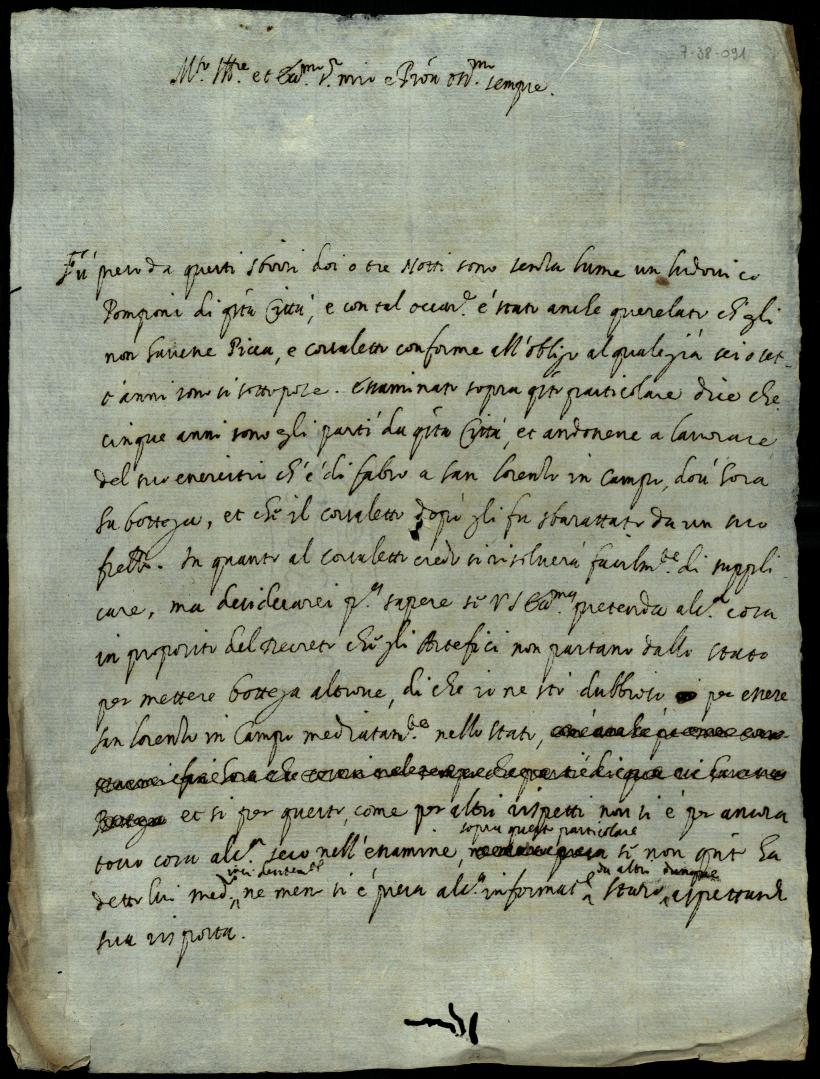 7-38-091
M.to Ill.re et Ecc.mo S.r mio e Prõn oss.mo sempre.
Fù preso da questi sbirri doi o tre Notti sono senza lume un Ludovico
Pomponi di q̃sta Città, e con tal occas.e é stato anche querelato ch'egli
non havesse Picca, e corsaletto conforme all'obligo al quale già sei o set-
t'anni sono si sottopose. Essaminato sopra q̃sto particolare dice che
cinque anni sono egli partì da q̃sta Città, et andosene a lavorare
del suo essercitio ch'é di fabro a san Lorenzo in Campo, dov'hora
ha bottega, et che il corsaletto dopò gli fu sbarattato da un suo
fr̃ello. In quanto al corsaletto credo si risolverà facilm.te di suppli
care, ma desiderarei p.a sapere se V S Ecc.ma pretenda alc.a cosa
in proposito del Decreto che gli Artefici non partano dallo stato
per mettere bottega altrove, di che io ne stò dubbioso per essere
san Lorenzo in Campo mediatam.te nello stato,
et si per questo, come per altri rispetti non si é per ancora
tocco cosa alc.a seco nell'essamine, sopra questo particolare se non q̃nto ha
detto lui med.o ne meno si é presa alc.a informat.e da altri starò dunque aspettando
sua risposta.